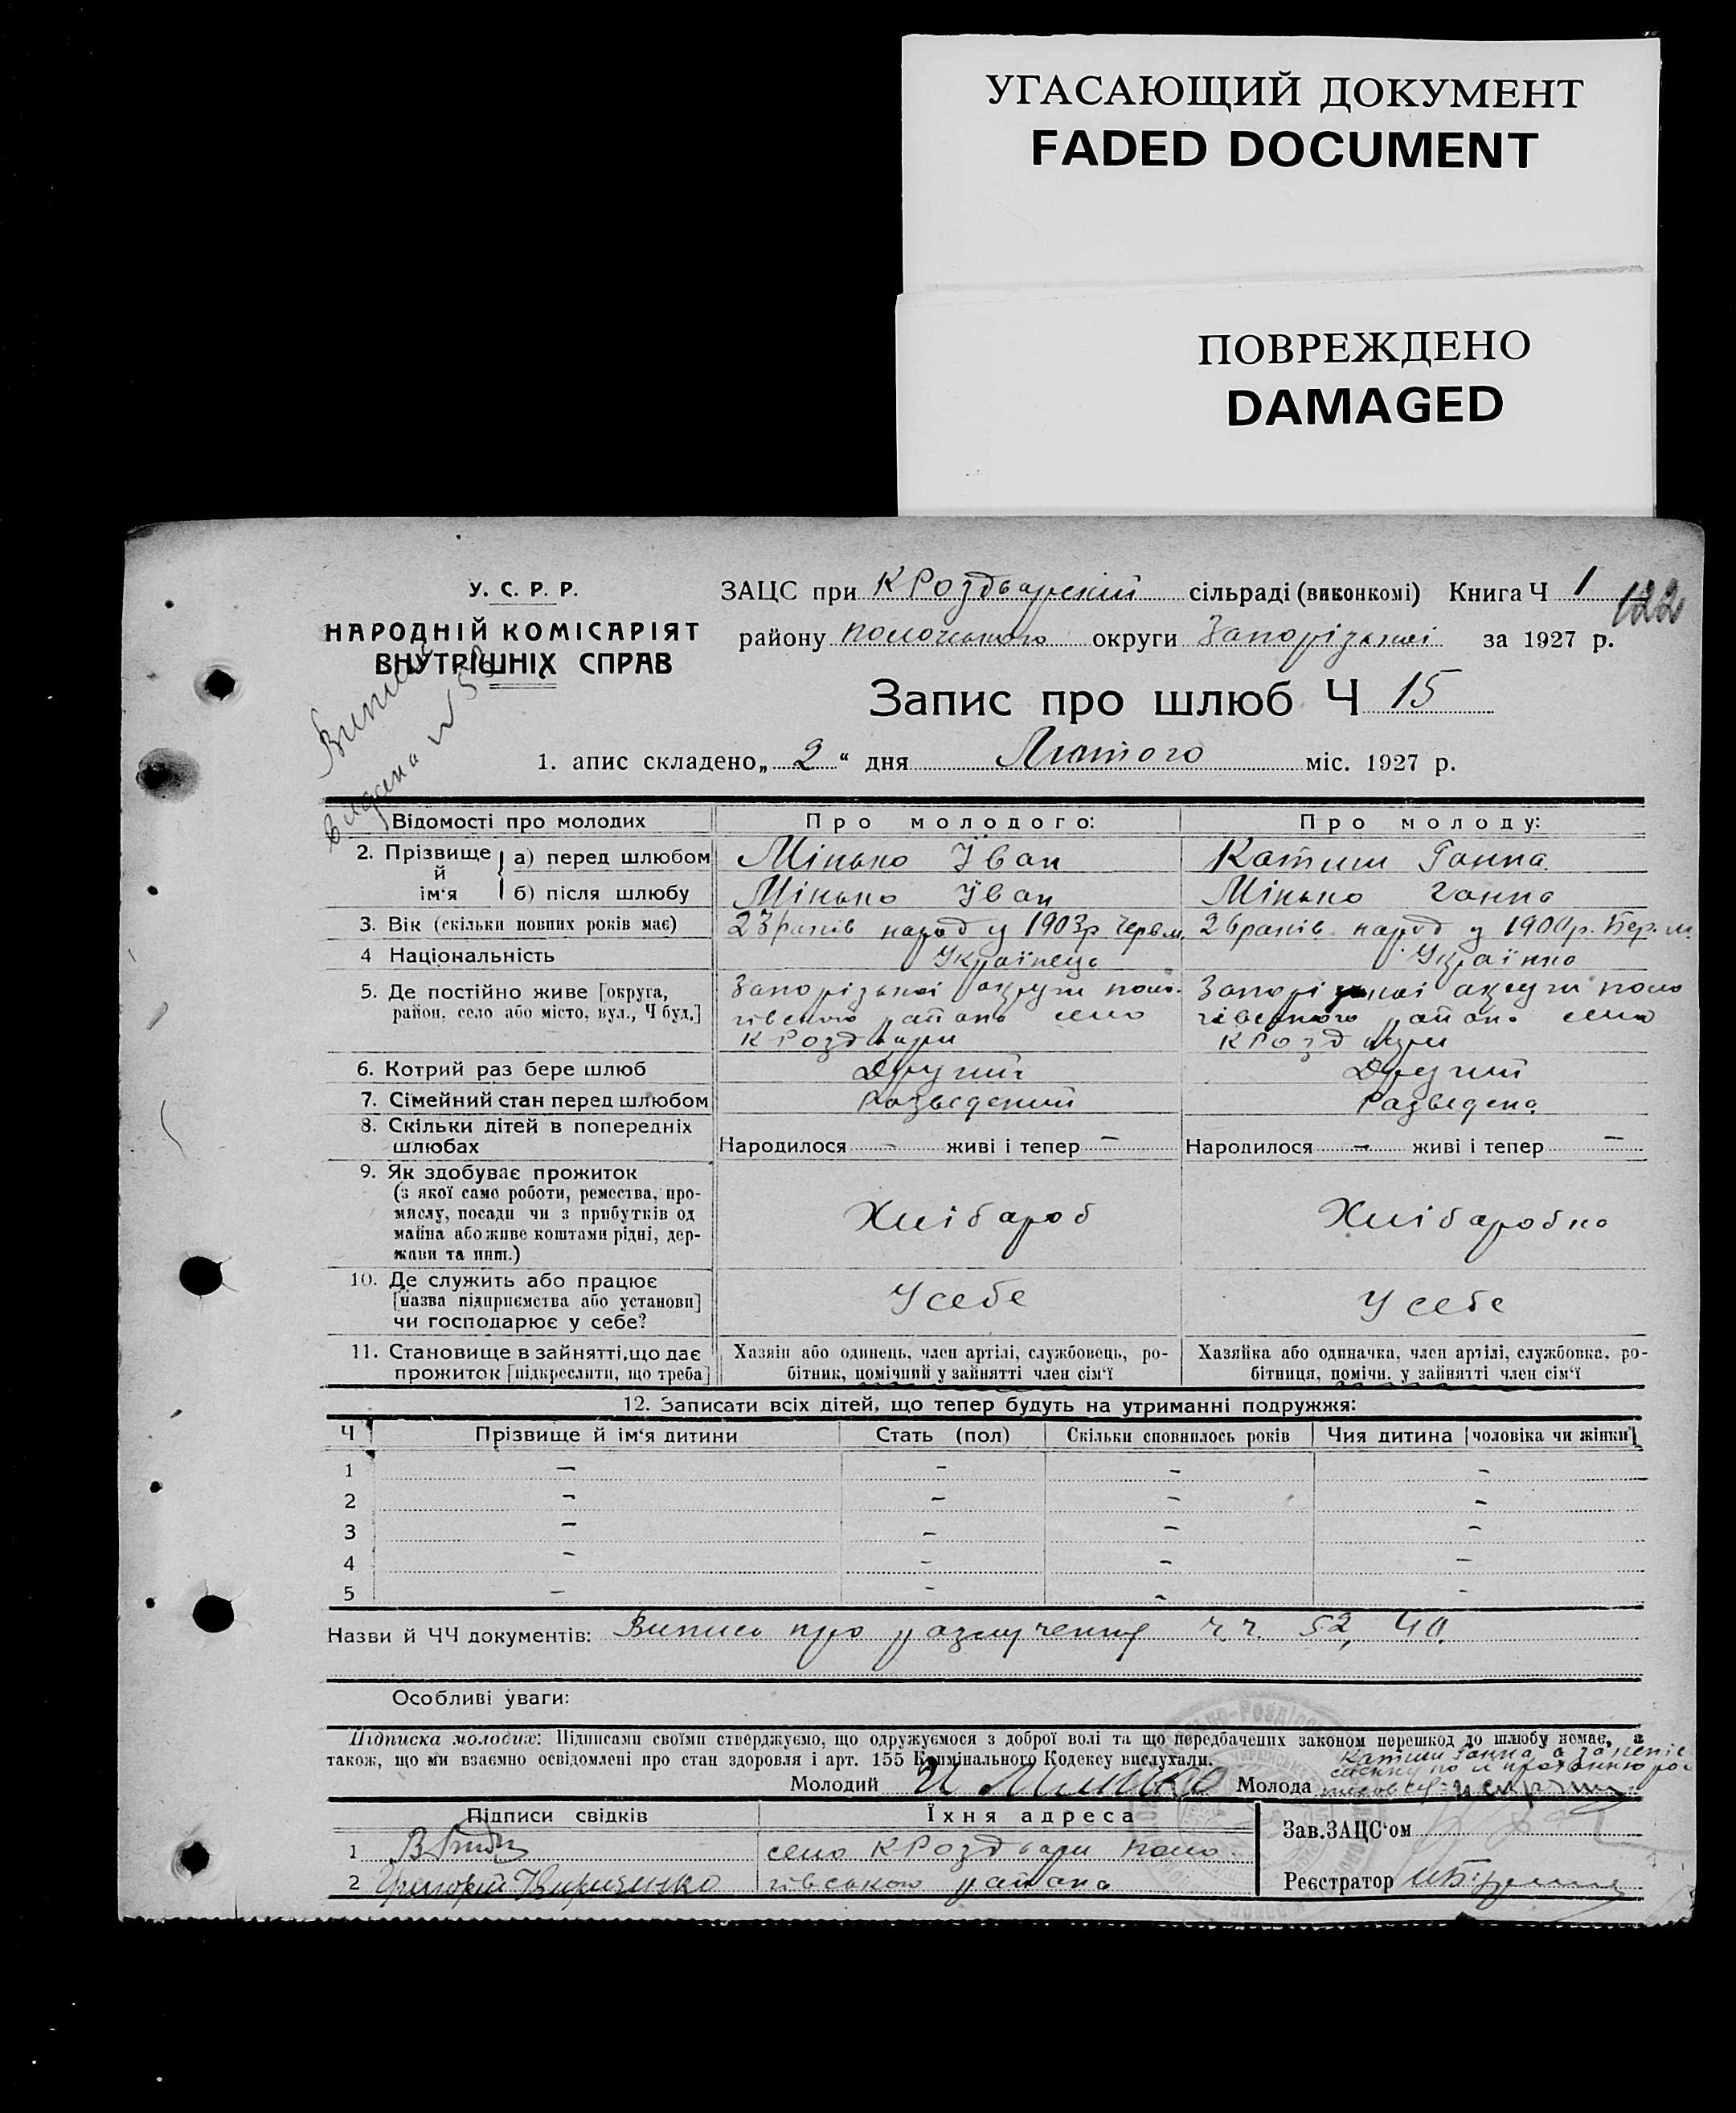 УГАСАЮЩИЙ ДОКУМЕНТ
FADED DOCUMENT
ПОВРЕЖДЕНО
DAMAGED
У. С. Р. Р.
НАРОДНІЙ КОМІСАРІЯТ
ВНУТРІШНІХ СПРАВ
ЗАЦС при К Роздорській сільраді (виконкомі) Книга Ч 1
122
району округи Запорізької за 1927 р.
Запис про шлюб Ч 15
1. апис складено „ 2 “ дня Лютого міс. 1927 р.
Відомості про молодих Про молодого: Про молоду:
2. Прізвище й ім‘я
а) перед шлюбом Мінько Їван Катиш Ганна
б) після шлюбу Мінько Їван Мінько Ганна
3. Вік (скільки повних років має) 23 років народ у 1903 р Черв.м. 26 років народ у 1900 р. Бер. м.
4 Національність Українець Українка
5. Де постійно живе [округа, район, село або місто, вул., Ч буд.]
Запорізької округи поло- Запорізької округи поло
гівського району село гівського району село
К Роздори К Роздори
6. Котрий раз бере шлюб Другий Другий
7. Сімейний стан перед шлюбом Разведений Разведена
8. Скільки дітей в попередніх шлюбах Народилося – живі і тепер – Народилося – живі і тепер –
9. Як здобуває прожиток
(з якої само роботи, ремества, про-
мислу, посади чи з прибутків од
майна або живе коштами рідні, дер-
жави та инш.)
Хлібороб Хліборобка
10. Де служить або працює
[назва підприємства або установи]
чи господарює у себе?
У себе У себе
11. Становище в зайнятті, що дає
прожиток [підкреслити, що треба]
Хазяїн або одинець, член артілі, службовець, ро-
бітник, помічний у зайнятті член сім‘ї
Хазяйка або одиначка, член артілі, службовка, ро-
бітниця, помічн. у зайнятті член сім‘ї
12. Записати всіх дітей, що тепер будуть на утриманні подружжя:
Ч Прізвище й ім‘я дитини Стать (пол) Скільки сповнилось років Чия дитина [чоловіка чи жінки]
1 – – – –
2 – – – –
3 – – – –
4 – – – –
5 – – – –
Назви й ЧЧ документів: Виписи про разлучення ч.ч. 52, 40.
Особливі уваги:
Підписка молодих: Підписами своїми стверджуємо, що одружуємося з доброї волі та що передбачених законом перешкод до шлюбу немає, а
також, що ми взаємно освідомлені про стан здоровля і арт. 155 Кримінального Кодексу вислухали.
Молодий И Минько Молода Катиш Ганна а за неписменну по її проханню
Підписи свідків Їхня адреса
1 село К Роздори поло
2 Григорій Кириченко гівського району
Зав. ЗАЦС‘ом
Реєстратор